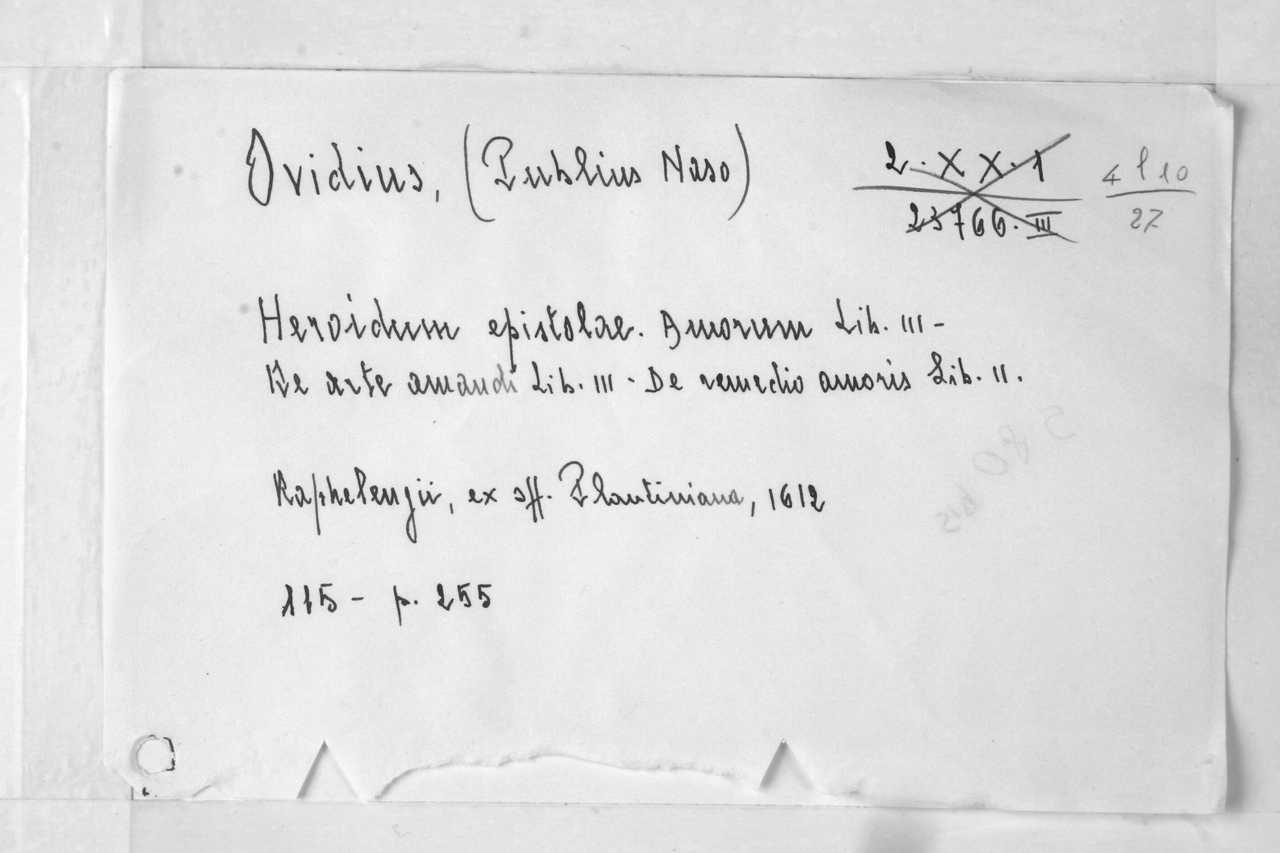 Ovidius, (Publius Naso)
2. X X. 1
23766. III
4 l 10
27
Heroidum epistolae. Amorum Lib. III -
De arte amandi Lib. III. De remedio amoris Lib. II.
Raphelengii, ex off. Plantiniana, 1612
115 - p. 255
580 bis